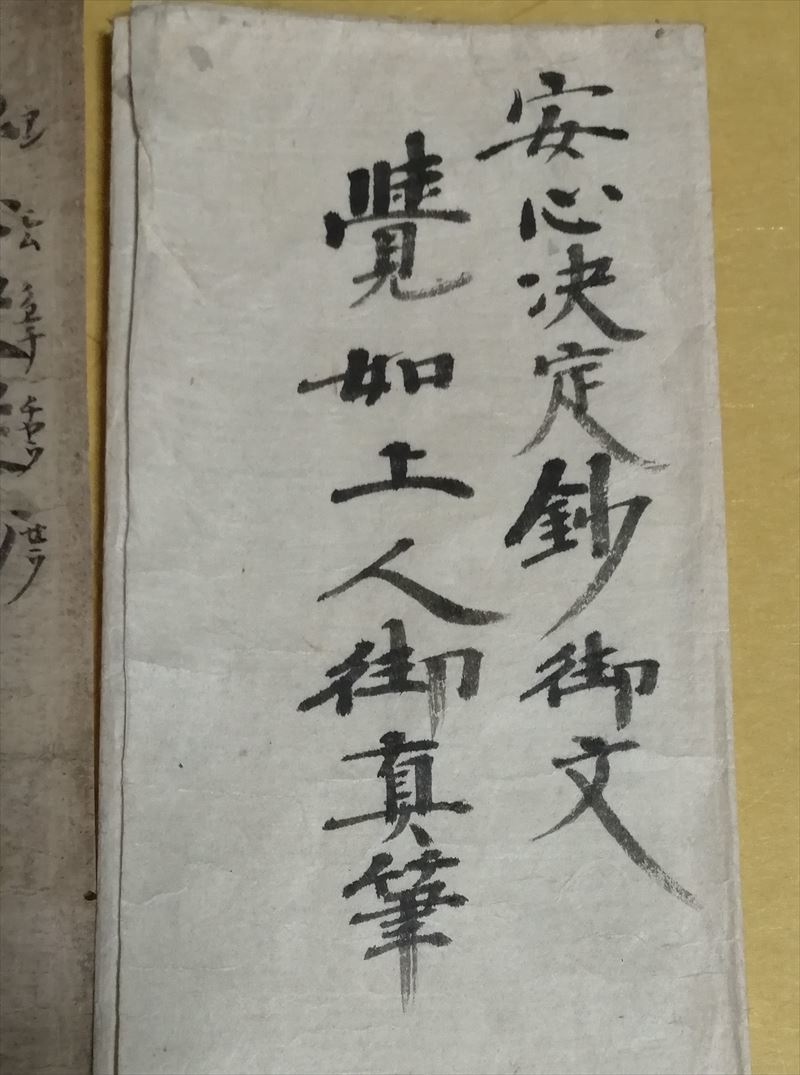 安心决定鈔御文
覺如上人御真筆